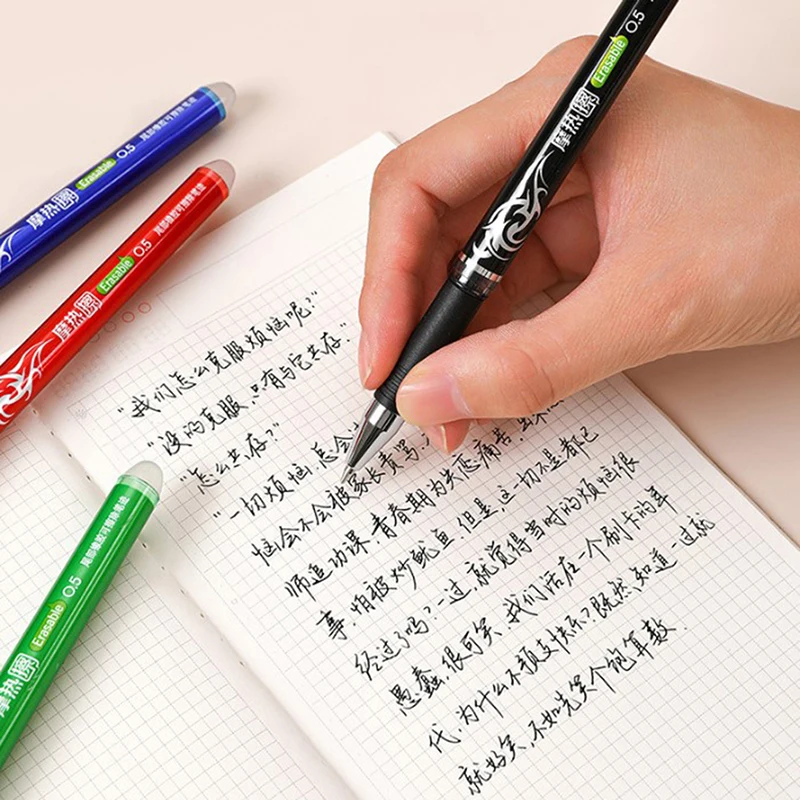 摩热擦 Erasable 0.5 尾部橡胶可擦除笔迹
摩热擦 Erasable 0.5 尾部橡胶可擦除笔迹
摩热擦 Erasable 0.5 尾部橡胶可擦除笔迹
摩热擦 Erasable 0.5
"我们怎么克服烦恼呢?"
"没的克服,只有与它共存."
"怎么共存?"
"一切烦恼,怎会
恼会不会被家长责骂,
师追功课.青春期为失恋痛苦,出来
事,怕被炒鱿鱼.但是,这一切不是都已
经过了吗?一过,就觉得当时的烦恼很
愚蠢,很可笑.我们活在一个刷卡的年
代,为什么不预支快乐?既然知道一过就
就好笑,不如先笑个饱算数.